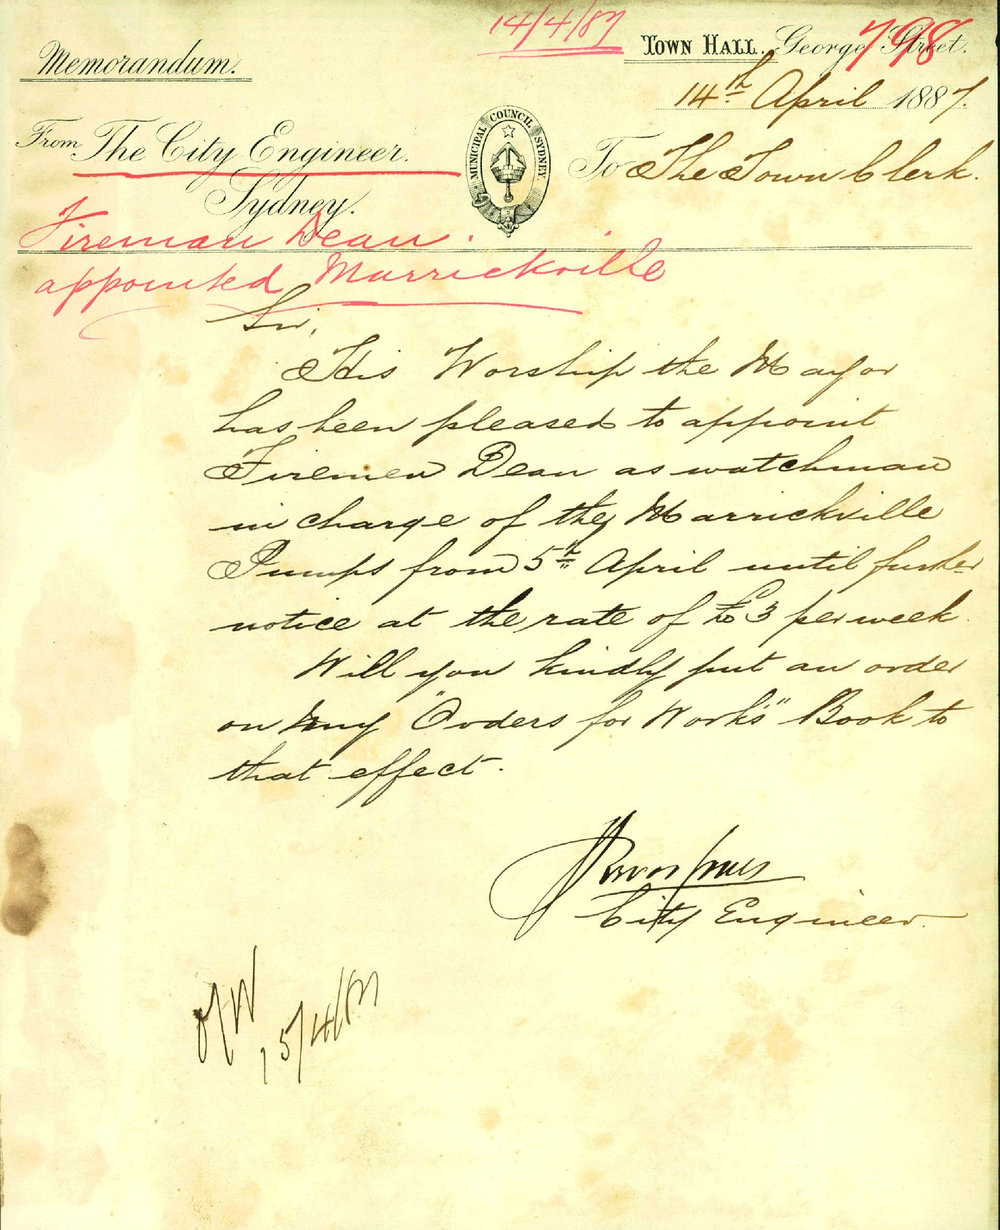 14/4/87
798
Memorandum.
Town Hall, George Street.
14th April 1887.
From The City Engineer.
Sydney.
MUNICIPAL COUNCIL SYDNEY
To The Town Clerk.
Fireman Dean.
appointed Marrickville
Sir,
His Worship the Mayor
has been pleased to appoint
Firemen Dean as watchman
in charge of the Marrickville
Pumps from 5th April until further
notice at the rate of £3 per week.
Will you kindly put an order
on my "Orders for Works" Book to
that effect.
City Engineer.
O/W
15/4/87